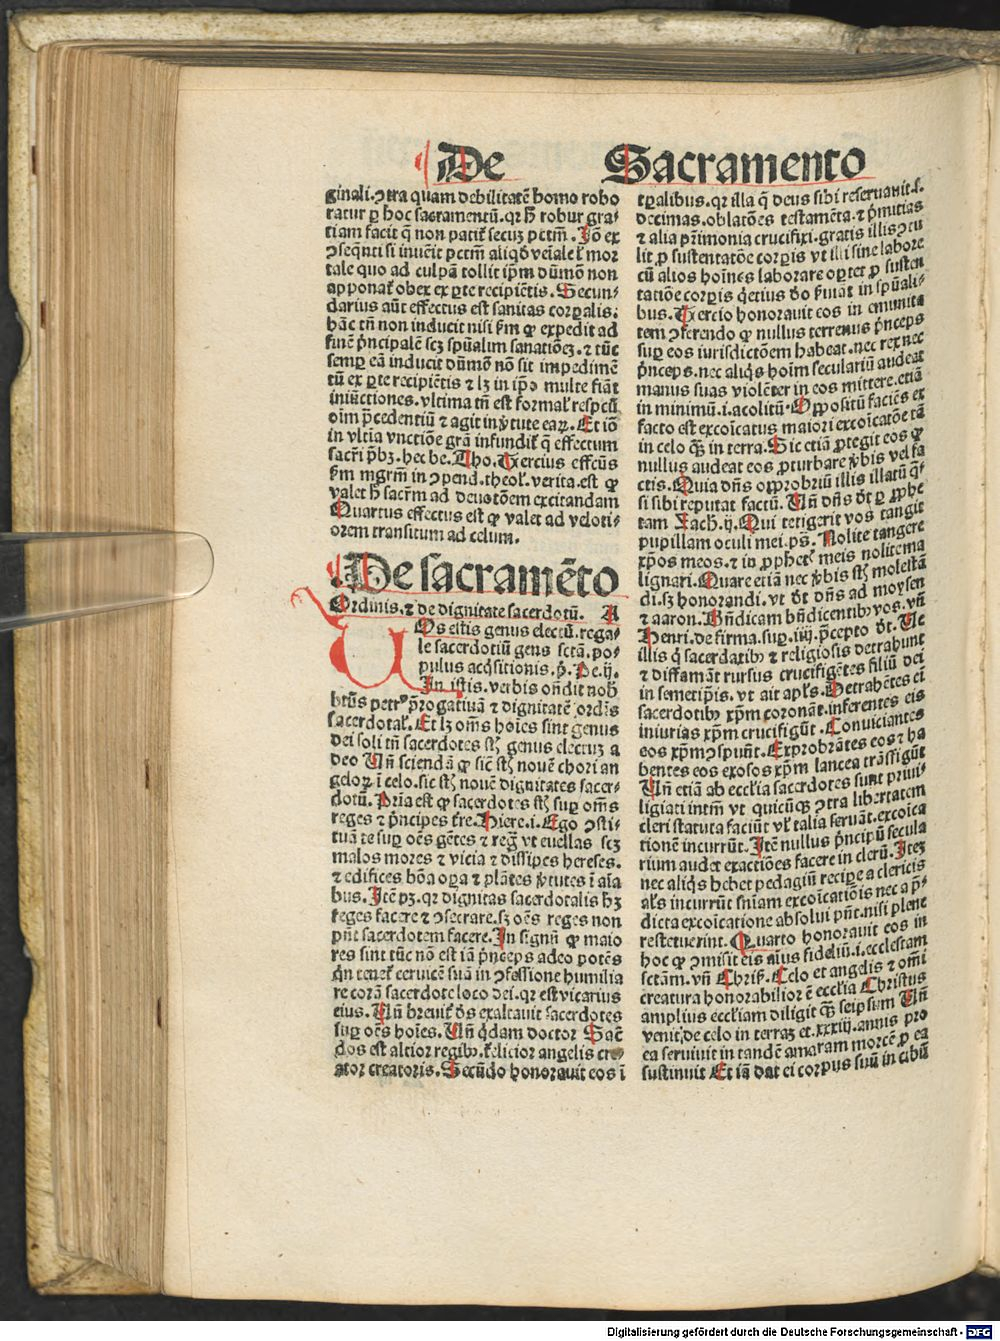 De Sacramento
ginali.ꝯtra quam debilitatē homo robo
ratur ꝑ hoc sacramentū.qꝛ hꝰ robur gra⸗
tiam facit q̄ non patit᷑ secuꝫ pctm̄.Jō ex
ꝯseqn̄ti si inueīt pctm̄ aliqd̄ veīale ł mor
tale quo ad culpā tollit ip̄m dūmō non
apponat᷑ obex ex ꝑte recipiētis.Secun⸗
darius aūt effectus est sanitas corꝑalis:
hāc tn̄ non inducit nisi ẜm ꝙ expedit ad
finē pͥncipalē scꝫ spūalim sanatiōeꝫ.⁊ tūc
semꝑ eā inducit dūmō nō sit impedimē
tū ex ꝑte recipiētis ⁊ lꝫ in ip̄o multe fiāt
iniūctiones.vltima tn̄ est formaꝉ respcū
oīm p̄cedentiū ⁊ agit in ꝟtute eaꝝ.Et iō
in vltīa vnctiōe grā infundit᷑ q̄ effectum
sacr̄i p̄bꝫ.hec be.Tho.Tercius effcūs
ẜm mgr̄m in ꝯpend.theoꝉ.verita.est ꝙ
valet hꝰ sacr̄m ad deuotōem excitandam
Quartus effectus est ꝙ valet ad veloti⸗
orem transitum ad celum.
De sacramēto
Ordinis.⁊ de dignitate sacerdotū. A
UOs estis genus electū.rega⸗
le sacerdotiū gens sctā.po⸗
pulus acq̇sitionis.pͥ.Pe.ij.
In istis.verbis on̄dit nob̄
btūs petrꝰ p̄rogatiuā ⁊ dignitatē ordīs
sacerdotaꝉ.Et lꝫ om̄s hoīes sint genus
dei soli tn̄ sacerdotes st̄ genus electuꝫ a
deo Un̄ sciendā ꝙ sic̄ st̄ nouē chori an
geloꝝ ī celo.sic st̄ nouē dignitates sacer⸗
dotū.Prīa est ꝙ sacerdotes st̄ suꝑ om̄s
reges ⁊ pͥncipes t̄re.Hiere.i.Ego ꝯsti⸗
tuā te suꝑ oēs gētes ⁊ regͣ vt euellas scꝫ
malos mores ⁊ vicia ⁊ dissipes hereses.
⁊ edifices bōa oꝑa ⁊ plātes ꝟtutes ī aīa
bus.Itē pꝫ.qꝛ dignitas sacerdotalis hꝫ
reges facere ⁊ ꝯsecrare.sꝫ oēs reges non
pn̄t sacerdotem facere.In signū ꝙ maio
res sint tūc nō est iā pͥnceps adeo potēs
qͥn tenet᷑ ceruicē suā in ꝯfessione humilia
re corā sacerdote loco dei.qꝛ est vicarius
eius.Un̄ breuit᷑ dn̄s exaltauit sacerdotes
suꝑ oēs hoīes.Un̄ qͥdam doctor Sac̄
dos est altior regibꝰ.felicior angelis cre
ator creatoris.Secūdo honorauit eos ī
tꝑalibus.qꝛ illa q̄ deus sibi reseruauit.ſ.
decimas.oblatōes testamēta.⁊ pͥmitias
⁊ alia pr̄imonia crucifixi.gratis illis ꝯtu
lit ꝓ sustentatōe corꝑis vt illi sine labore
cū alios hoīnes laborare oꝑtet ꝓ susten
tatiōe corꝑis qͥetius do ẜuiāt in spūali⸗
bus.Tercio honorauit eos in emunita
tem ꝯferendo ꝙ nullus terrenus pͥnceps
suꝑ eos iurisdictōem habeat.nec rex nec
pͥnceps.nec aliqͥs hoīm seculariū audeat
manus suas violēter in eos mittere.etiā
in minimū.i.acolitū.Oppositū faciēs ex
facto est excoīcatus maiori excoīcatōe tā
in celo qͣꝫ in terra.Sic etiā ꝓtegit eos ꝙ
nullus audeat eos ꝑturbare ꝟbis vel fa
ctis.Quia dn̄s opprobriū illis illatū qͣ⸗
si sibi reputat factū.Un̄ dn̄s dt̄ ꝑ ꝓphe
tam Zach.ij.Qui tetigerit vos tangit
pupillam oculi mei.ps̄.Nolite tangere
xp̄os meos.⁊ in ꝓphetꝭ meis nolite ma
lignari.Quare etiā nec ꝟbis st̄ molestā
di.sꝫ honorandi.vt dt̄ dn̄s ad moysen
⁊ aaron.Bn̄dicam bn̄dicentibꝰ vos.vn̄
Henri.de firma.suꝑ.iiij.p̄cepto dt̄.Ue
illis qͥ sacerdotibꝰ ⁊ religiosis detrahunt
⁊ diffamāt rursus crucifigētes filiū dei
in semetip̄is.vt ait apl̄s.Detrahētes eī
sacerdotibꝰ xp̄m coronāt.inferentes eis
iniurias xp̄m crucifigūt.Conuiciantes
eos xp̄m ꝯspuūt.Exprobrātes eos ⁊ ha
bentes eos exosos xp̄m lancea trāsfigūt
Un̄ etiā ab eccl̄ia sacerdotes sunt priui⸗
ligiati intm̄ vt quicūqꝫ ꝯtra libertatem
cleri statuta faciūt vꝉ talia seruāt.excoīca
tionē incurrūt.Itē nullus pͥnceps secula
rium audet exactiōes facere in clerū.Iteꝫ
nec aliqͥs hebet pedagiū reciꝑe a clericis
al̄s incurrūt sn̄iam excoīcatiōis nec a p̄⸗
dicta excoīcatione absolui pn̄t.nisi plene
restituerint.Quarto honorauit eos in
hoc ꝙ ꝯmisit eis aīus fidelium.i.ecclesiam
sctām.vn̄ Chriſ.Celo et angelis ⁊ om̄i
creatura honorabilior ē eccl̄ia Christus
amplius eccl̄iam diligit qͣꝫ seipsum Un̄
venit de celo in terraꝫ et.xxxiij.annis pro
ea seruiuit in tandē amaram mortē ꝓ ea
sustinuit Et iā dat ei corpus suū in cibū
Digitalisierung gefördert durch die Deutsche Forschungsgemeinschaft - DFG